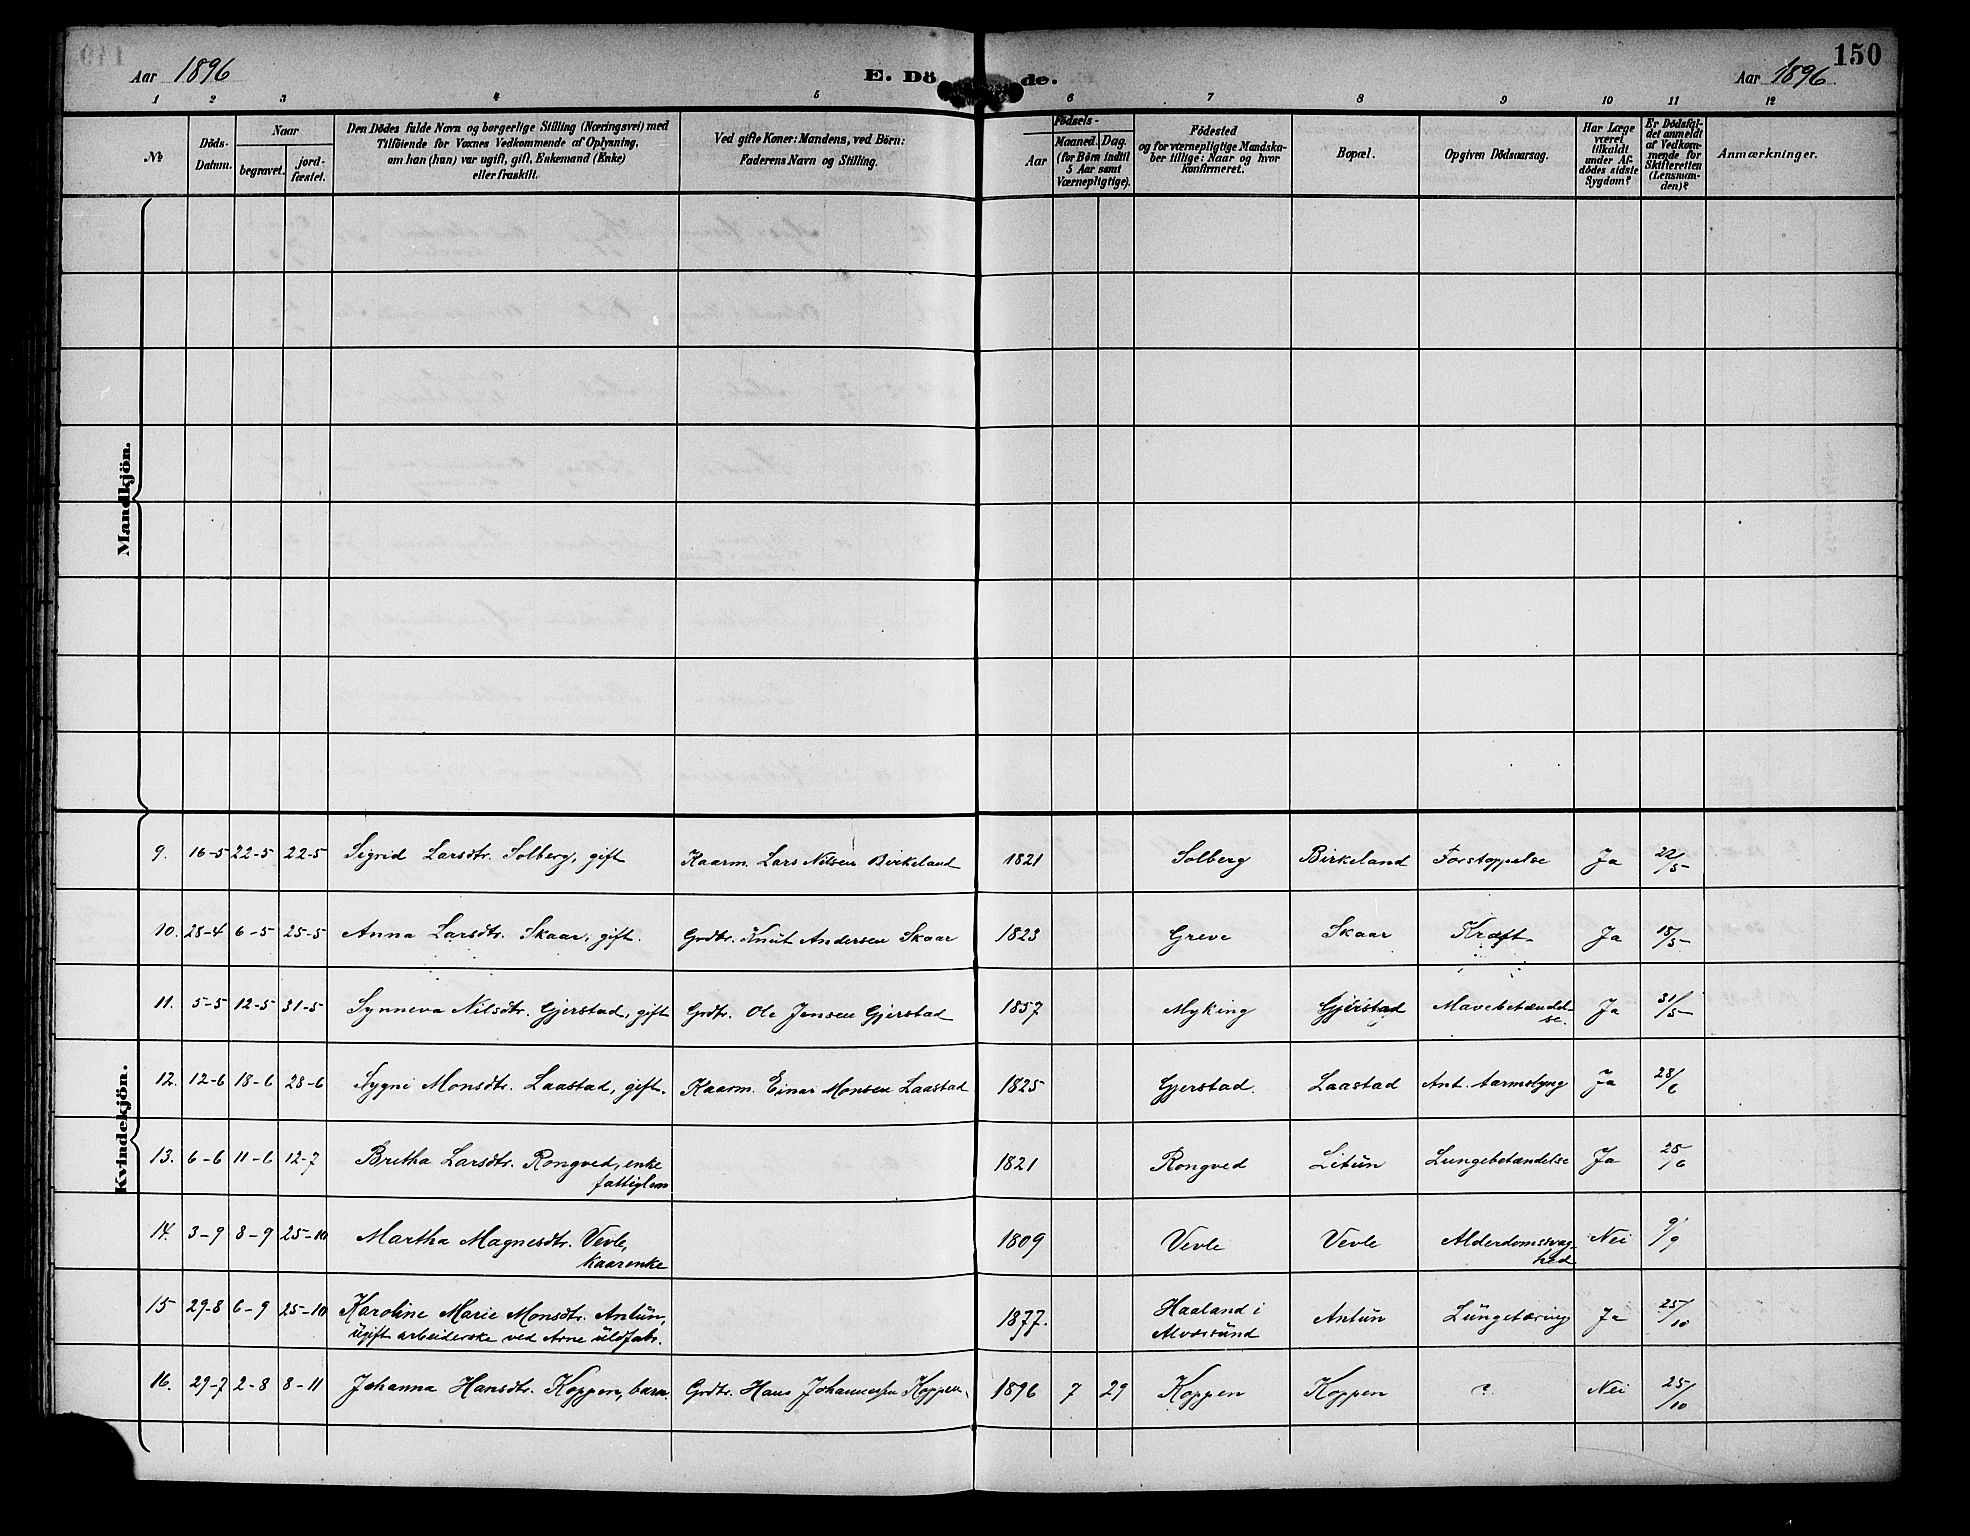 Aar 1896
E. Dö de.
Aar 1896
150
1 2 3 4 5 6 7 8 9 10 11 12
№
Döds-
Datum.
Naar
begravet.
jord-
fæstet.
Den Dödes fulde Navn og borgerlige Stilling (Næringsvei) med
Tilföiende for Voxnes Vedkommende af Oplysning,
om han (hun) var ugift, gift, Enkemand (Enke)
eller fraskilt.
Ved gifte Koner: Mandens, ved Börn:
Faderens Navn og Stilling.
Födsels-
Aar
Maaned.
Dag.
(for Börn indtil
5 Aar samt
Værnepligtige).
Födested
og for værnepligtige Mandska-
ber tillige: Naar og hvor
konfirmeret.
Bopæl.
Opgiven Dödsaarsag.
Har Læge
været
tilkaldt
under Af-
dödes sidste
Sygdom?
Er Dödsfal-
det anmeldt
af Vedkom-
mende for
Skifteretten
(Lensman-
den)?
Anmærkninger.
Mandkjön.
Kvindekjön.
9. 16-5 22-5 22-5 Sigrid Larsdtr. Solberg, gift Kaarm. Lars Nilsen Birkeland 1821 Solberg Birkeland Forstoppelse Ja 22/5
10. 28-4 6-5 25-5 Anna Larsdtr. Skaar, gift. Grdtr. Knut Andersen Skaar 1823 Greve Skaar Kræft Ja 15/5
11. 5-5 12-5 31-5 Synneva Nilsdtr. Gjerstad, gift Grdtr. Ole Jensen Gjerstad 1857 Myking Gjerstad Mavebetændel-
se. Ja 31/5
12. 12-6 18-6 28-6 Sygni Monsdtr. Laastad, gift. Kaarm. Einar Monsen Laastad 1825 Gjerstad. Laastad Ant. tarmslyng Ja 28/6
13. 6-6 11-6 12-7 Britha Larsdtr. Rongved, enke
fattiglem 1821 Rongved Litun Lungebetændelse Ja 25/6
14. 3-9 8-9 25-10 Martha Magnesdtr. Vevle,
kaarenke 1809 Vevle Vevle Alderdomssvag-
hed Nei 9/9
15 29-8 6-9 25-10 Karoline Marie Monsdtr. Antun,
ugift arbeiderske ved Arne uldfabr. 1877. Haaland i
Alversund Antun Lungetæring Ja 25/10
16. 29-7 2-8 8-11 Johanna Hansdtr. Koppen, barn. Grdtr. Hans Johannessen Koppen. 1896 7 29 Koppen Koppen ? Nei 25/10